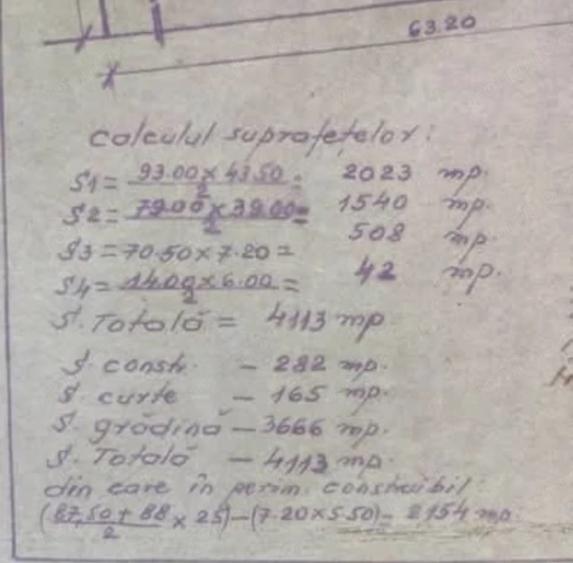 63.20
calculul suprafețelor:
S1 = 93.00 x 43.50 / 2 = 2023 mp.
S2 = 79.00 x 39.00 / 2 = 1540 mp.
S3 = 70.50 x 7.20 = 508 mp.
S4 = 14.00 x 6.00 / 2 = 42 mp.
S. Totală = 4113 mp
S. constr. - 282 mp.
S. curte - 165 mp.
S. grădină - 3666 mp.
S. Totală - 4113 mp.
din care în perim. construibil:
(87,50 + 88 / 2 x 25) - (7.20 x 5.50) = 2154 mp.